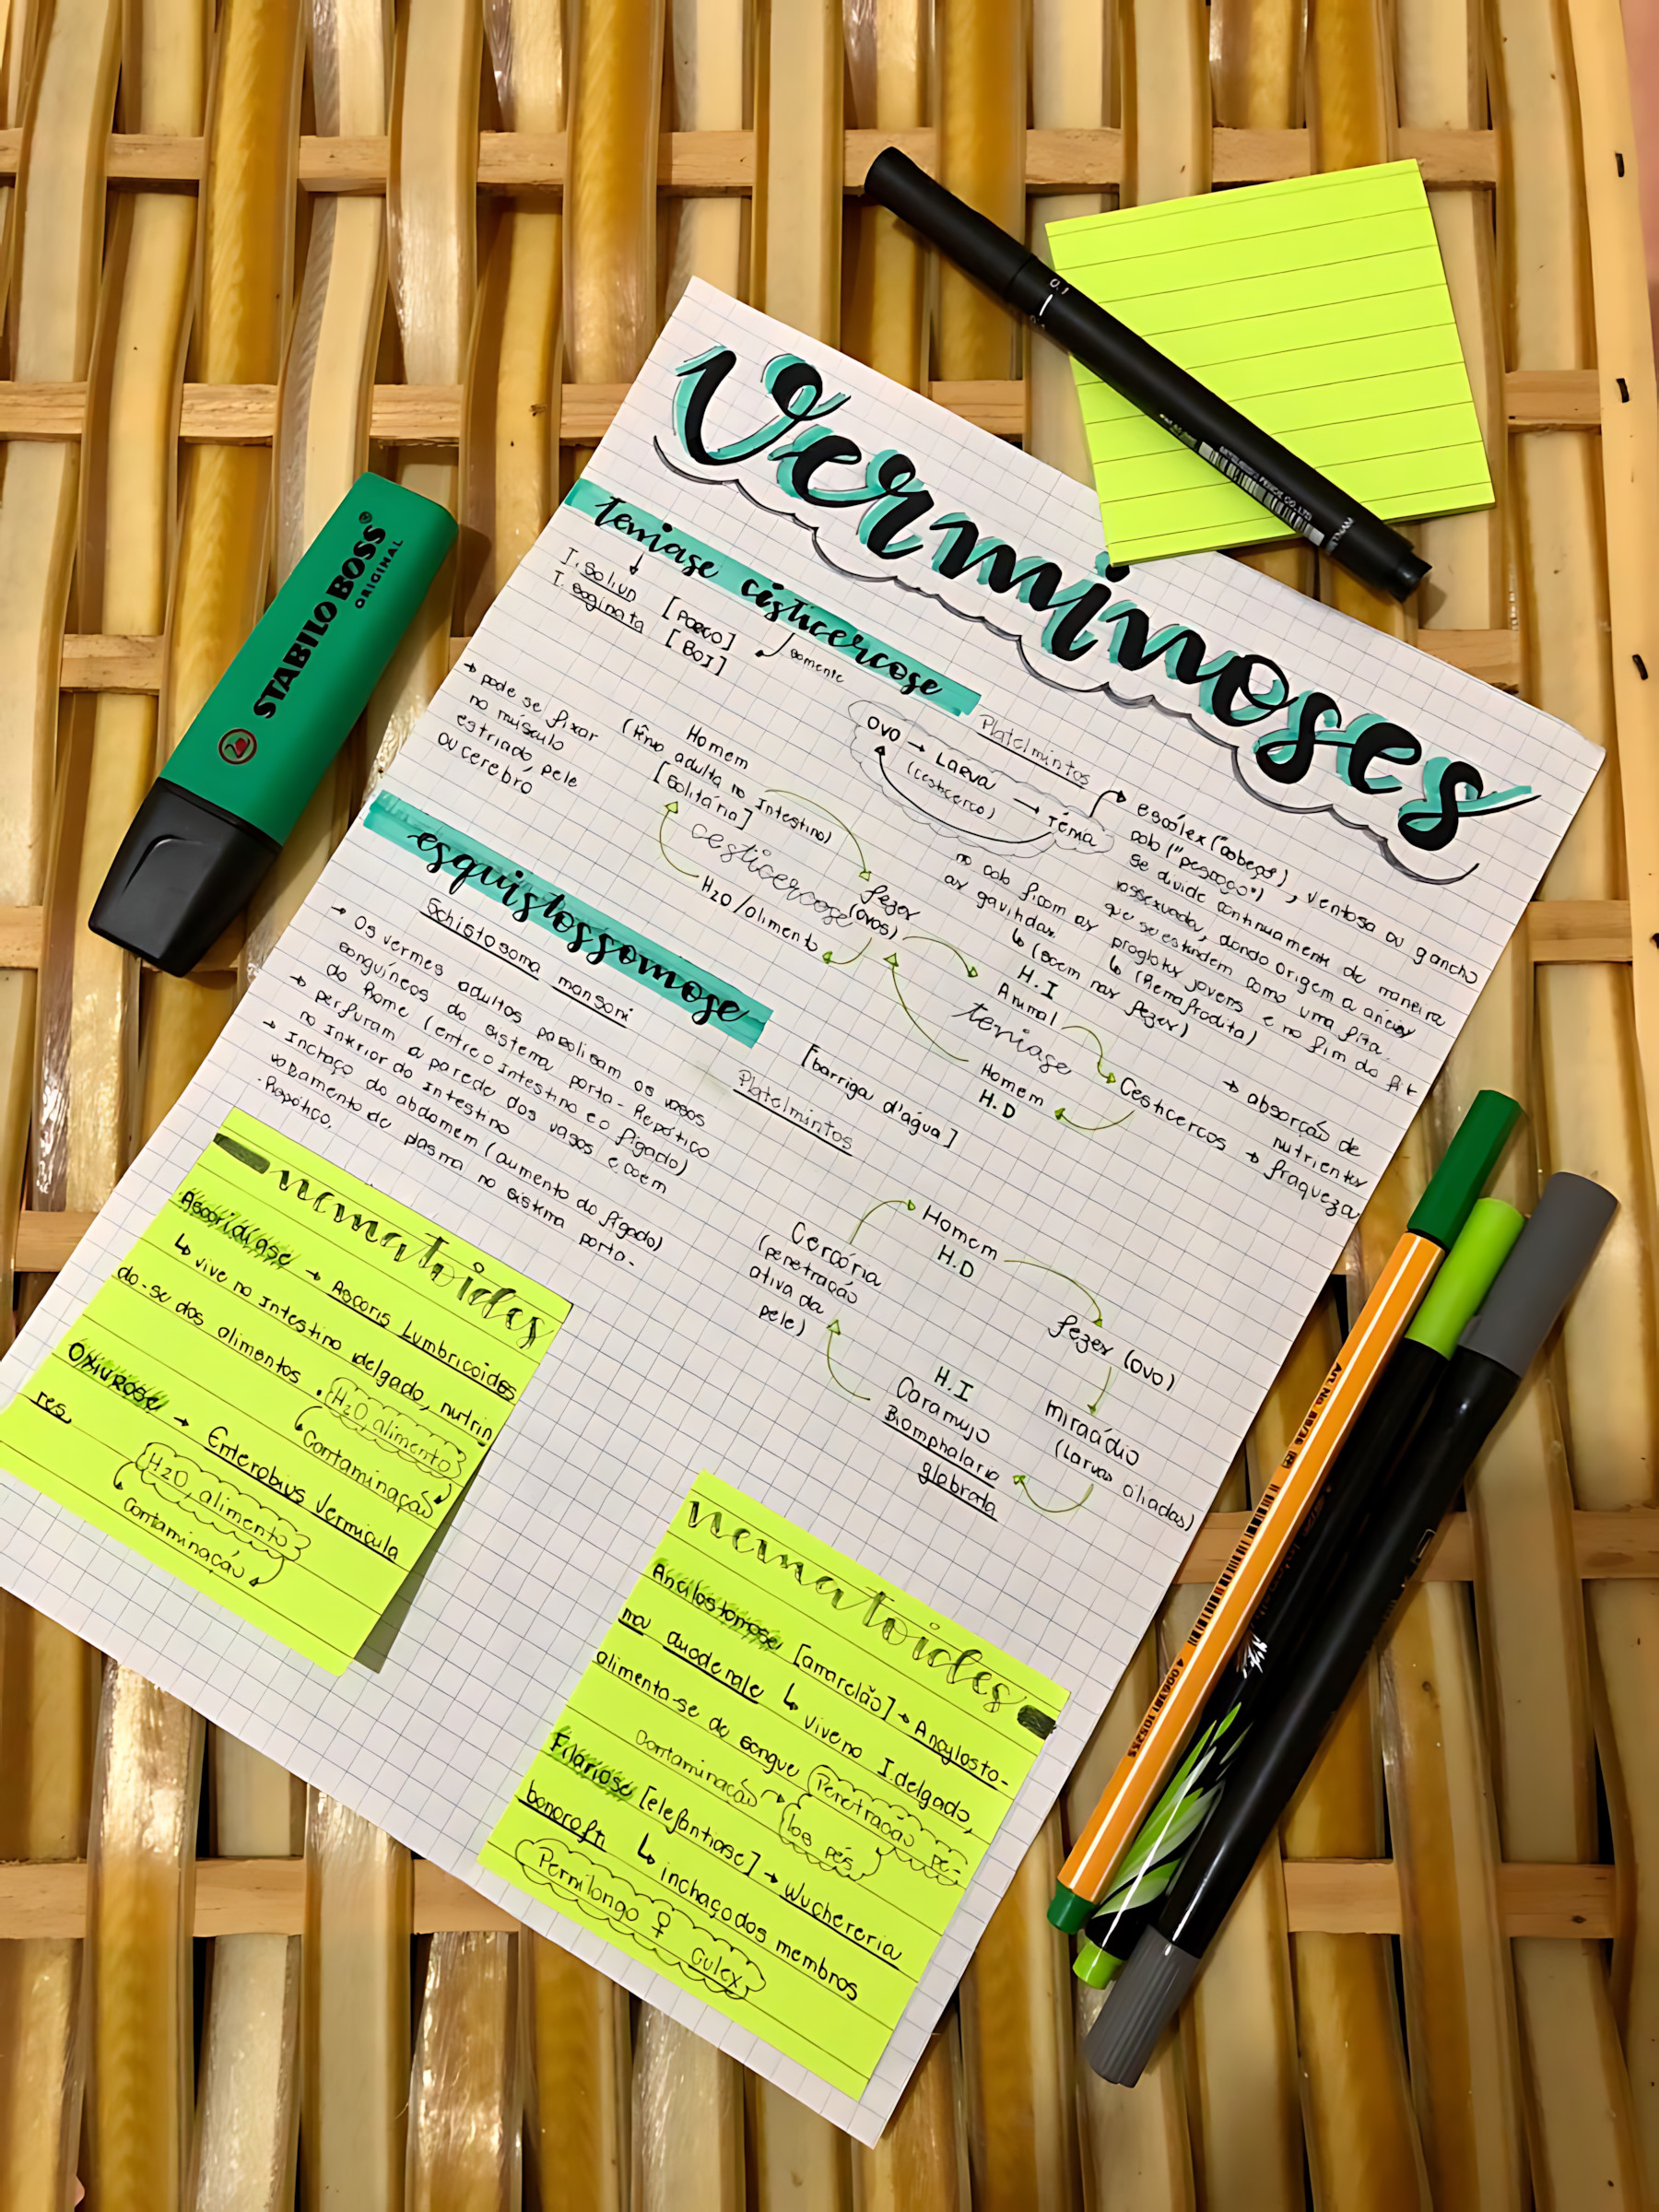 Verminoses
teniase cisticercose
T. Solium [PORCO]
T. saginata [BOI]
somente
→ pode se fixar
no músculo
estriado, pele
ou cerebro
Homem
(tênia adulta no Intestino)
[Solitária]
cesticercose
H2O/alimento
fezes
(ovos)
Platelmintos
OVO → Larva → Tênia
(cesticerco)
escólex ("cabeça"), ventosa ou gancho
colo ("pescoço")
se divide continuamente de maneira
assexuada, dando origem a anéis
que se estendem como uma fita.
no colo ficam as proglotes jovens e no fim do fit
as gavitdas
↳ (Hemafrodita)
↳ (saem nas fezes)
H.I
Animal
teniase
Homem
H.D
Cesticercos
→ absorção de
nutrientes
→ fraqueza
esquistossomose
Schistosoma mansoni
[barriga d'água]
Platelmintos
→ Os vermes adultos parasitam os vasos
sanguíneos do sistema porta-Hepático
do Home (entre o intestino e o fígado)
→ perfuram a parede dos vasos e caem
no interior do intestino
→ Inchaço do abdomem (aumento do fígado)
vazamento de plasma no sistema porta-
-Hepático.
Homem
H.D
fezes (ovo)
miracídio
(larvas ciliadas)
H.I
Caramujo
Biomphalaria
glabrata
Cercária
(penetração
ativa da
pele)
nematoides
Ascaridiáse → Ascaris Lumbricoides
↳ vive no Intestino delgado, nutrin
do-se dos alimentos.
H2O, alimento
Contaminação
Oxiurose → Enterobius Vermicula
res
H2O, alimento
Contaminação
nematoides
Ancilostomose [amarelão] → Ancylosto-
ma duodenale ↳ vive no I. delgado,
alimenta-se de sangue
Contaminação → Penetração pe-
los pés
Filariose [elefantiase] → Wuchereria
bancrofti ↳ inchaço dos membros
Pernilongo ♀ Culex
STABILO BOSS®
ORIGINAL
0.1
MITSUBISHI PENCIL CO.,LTD
Art. No. 88/36
4 006381 105255